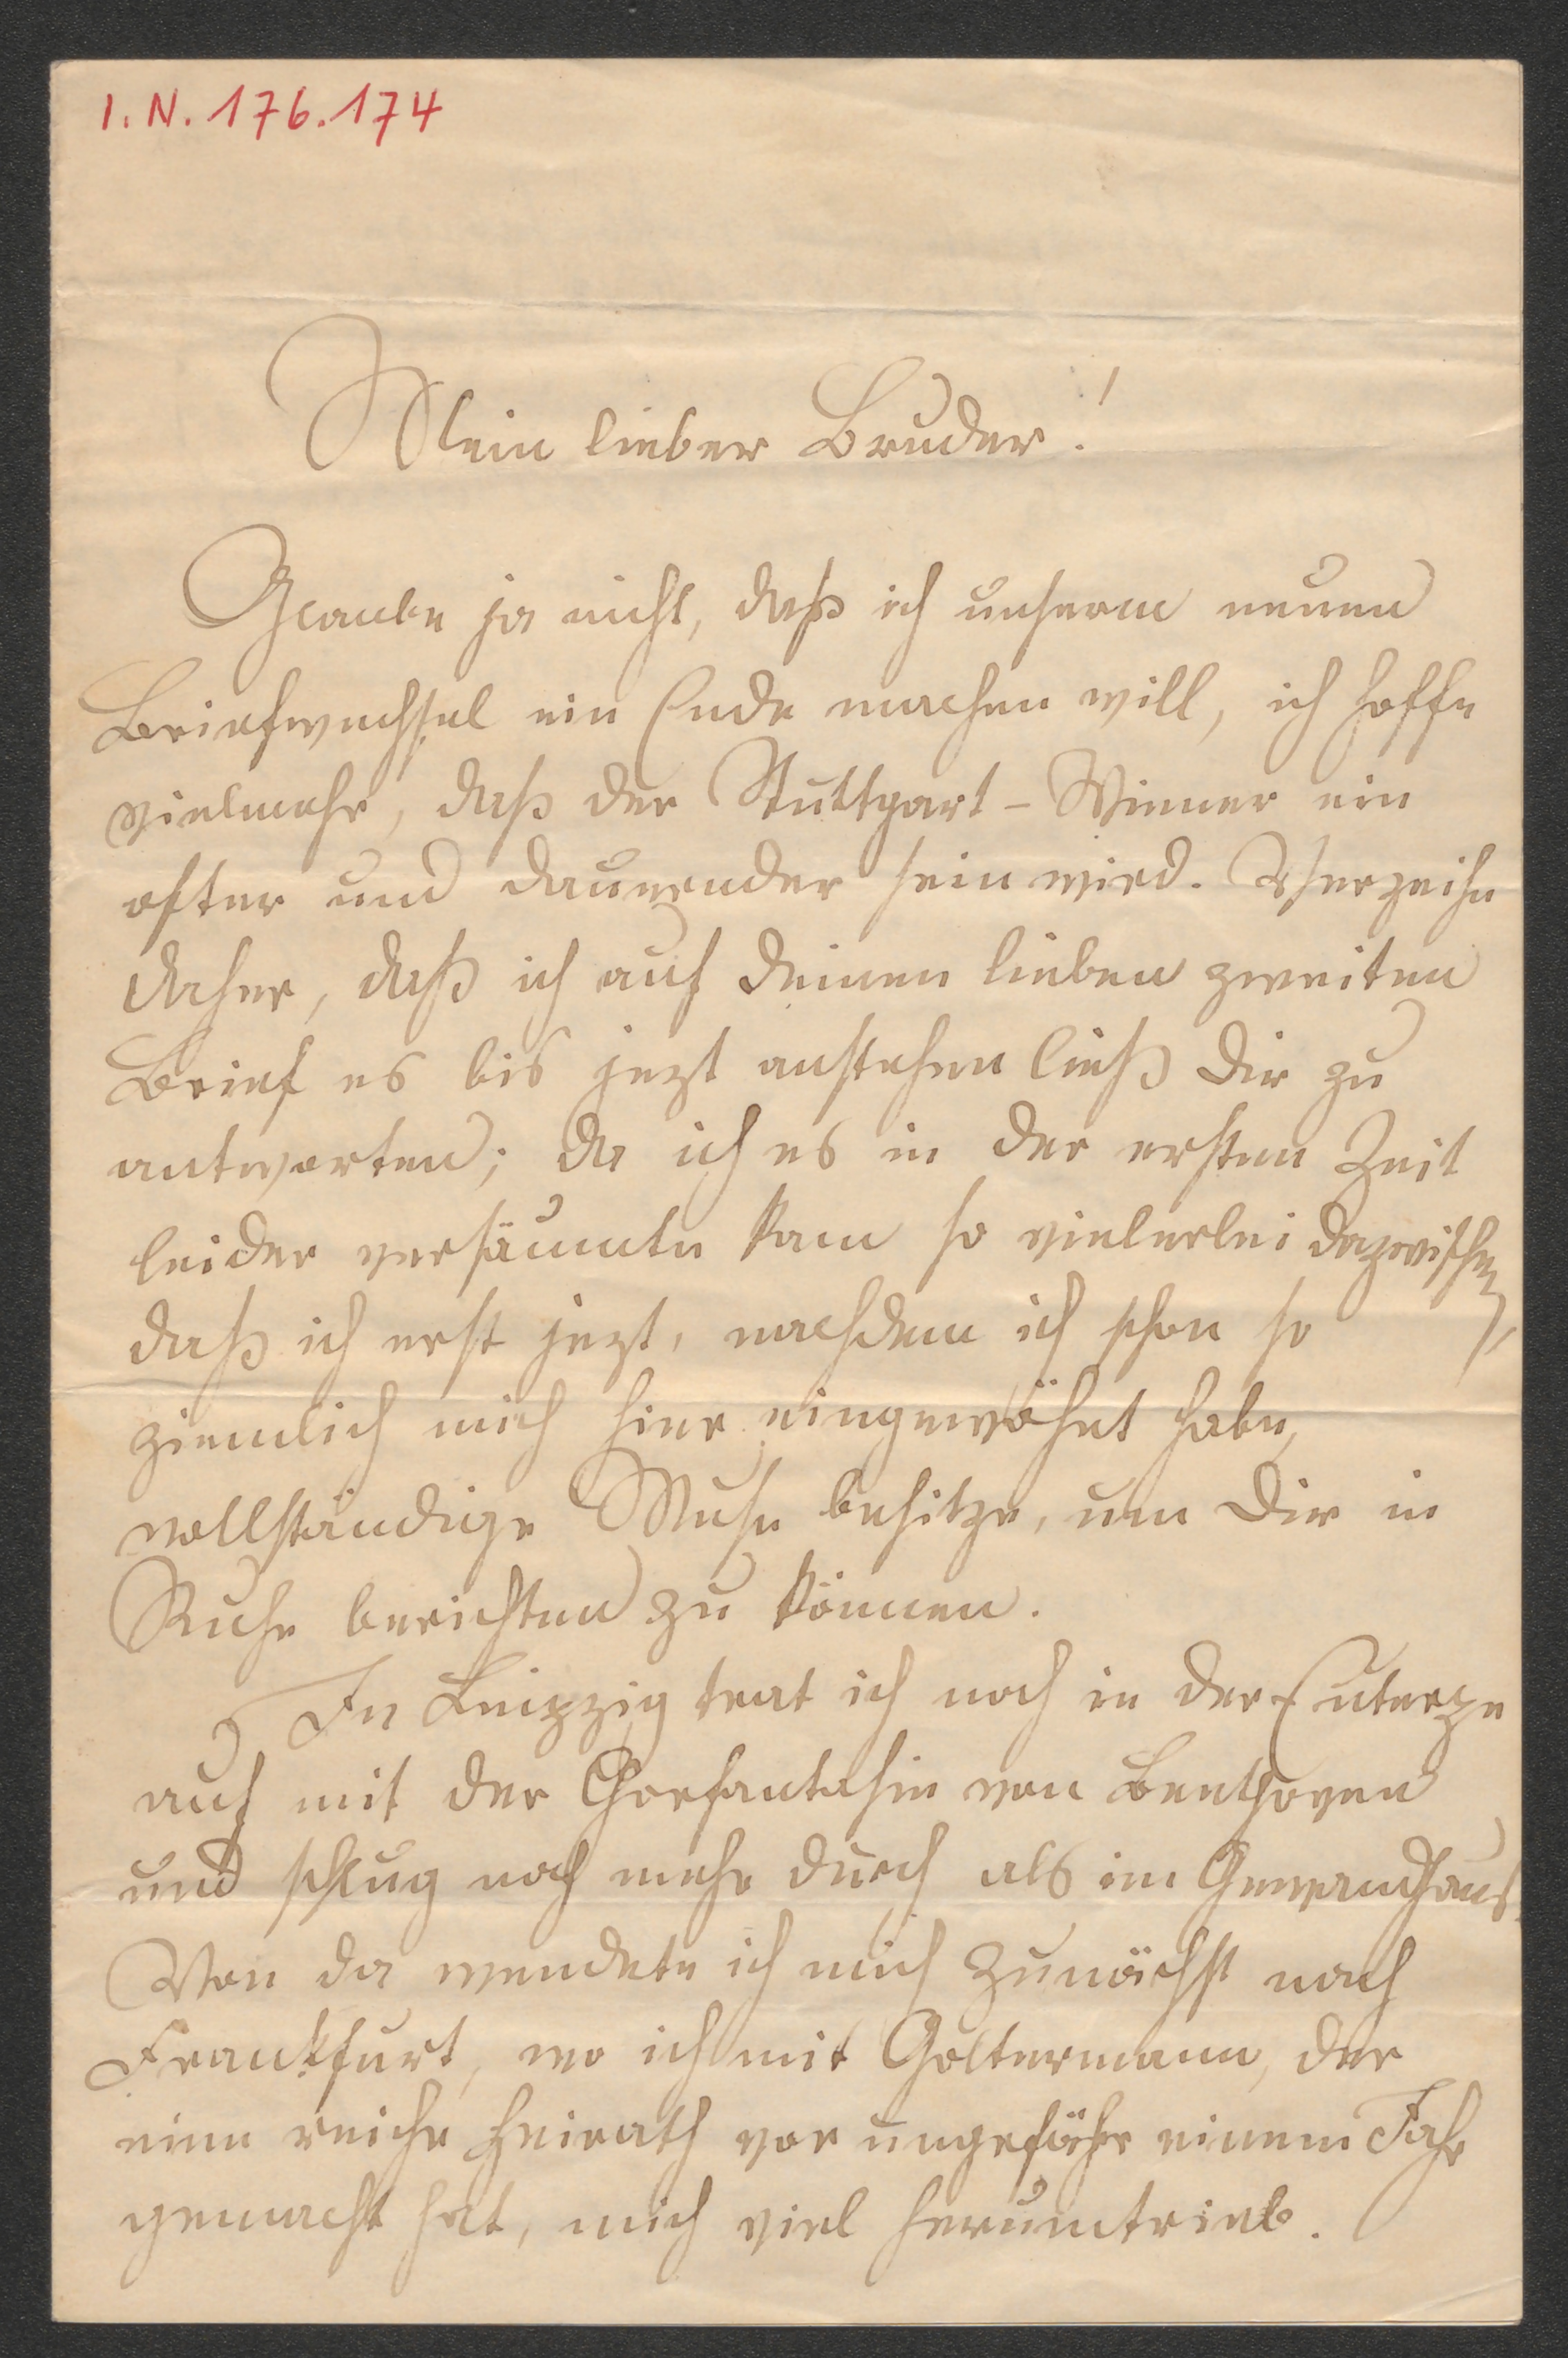 I.N. 176.174
Mein lieber Bruder!
Glaube ja nicht, daß ich unserm neuen
Briefwechsel ein Ende machen will, ich hoffe
vielmehr, daß der Stuttgart-Wiener ein
ofter und dauernder sein wird. Verzeihe
daher, daß ich auf Deinen lieben zweiten
Brief es bis jezt anstehen ließ Dir zu
antworten; da ich es in der ersten Zeit
leider versäumte kam so vielerlei dazwischen,
daß ich erst jezt, nachdem ich schon so
ziemlich mich hier eingewöhnt habe,
vollständige Muse besitze, um Dir in
Ruhe berichten zu können.
In Leipzig trat ich noch in der Euterpe
auf mit der Chorfantasie von Beethoven
und schlug noch mehr durch als im Gewandhaus.
Von da wendete ich mich zunächst nach
Frankfurt, wo ich mit Goltermann, der
eine reiche Heirath vor ungefähr einem Jahr
gemacht hat, mich viel herumtrieb.